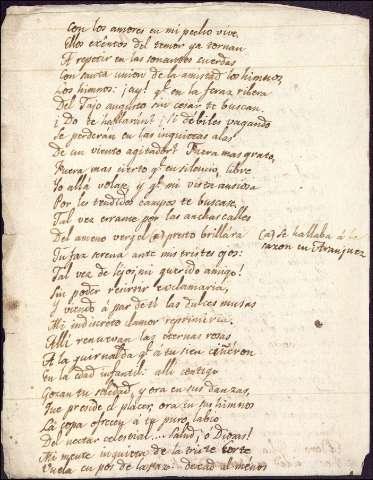 Con los amores en mi pecho vive.
Ellos exêntos del temor ya tornan
A repetir en las sonantes cuerdas
Con santa union de la amistad los himnos,
Los himnos: ¡ay! q.e en la feraz ribera
Del Tajo augusto sin cesar te buscan.
¡Do te hallarán! ¡Si débiles vagando
Se perderán en las inquietas alas
De un viento agitador! Fuera mas grato,
Fuera mas cierto q.e en silencio, libre
Yo allá volase, y q.e mi vista ansiosa
Por los tendidos campos te buscase.
Tal vez errante por las anchas calles
Del ameno vergel (a) presto brillára
Tu faz serena ante mis tristes ojos:
Tal vez de lejos ¡mi querido amigo!
Sin poder resistir exclamaria,
y viendo á par de ti las dulces musas
Mi indiscreto clamor reprimiria.
Alli renuevan las eternas rosas
A la guirnalda q.e a tu sien ciñéron
En la edad infantil: alli contigo
Gozan tu soledad, y ora en sus danzas,
Fue preside el placer, ora en sus himnos
La copa ofrecen á tu puro labio
Del nectar celestial.... Salud, ó Diosas!
Mi mente inquieta de la triste corte
Vuela en pos de la paz: decid al menos
(a) Se hallaba á la
sazon en Aranjuez